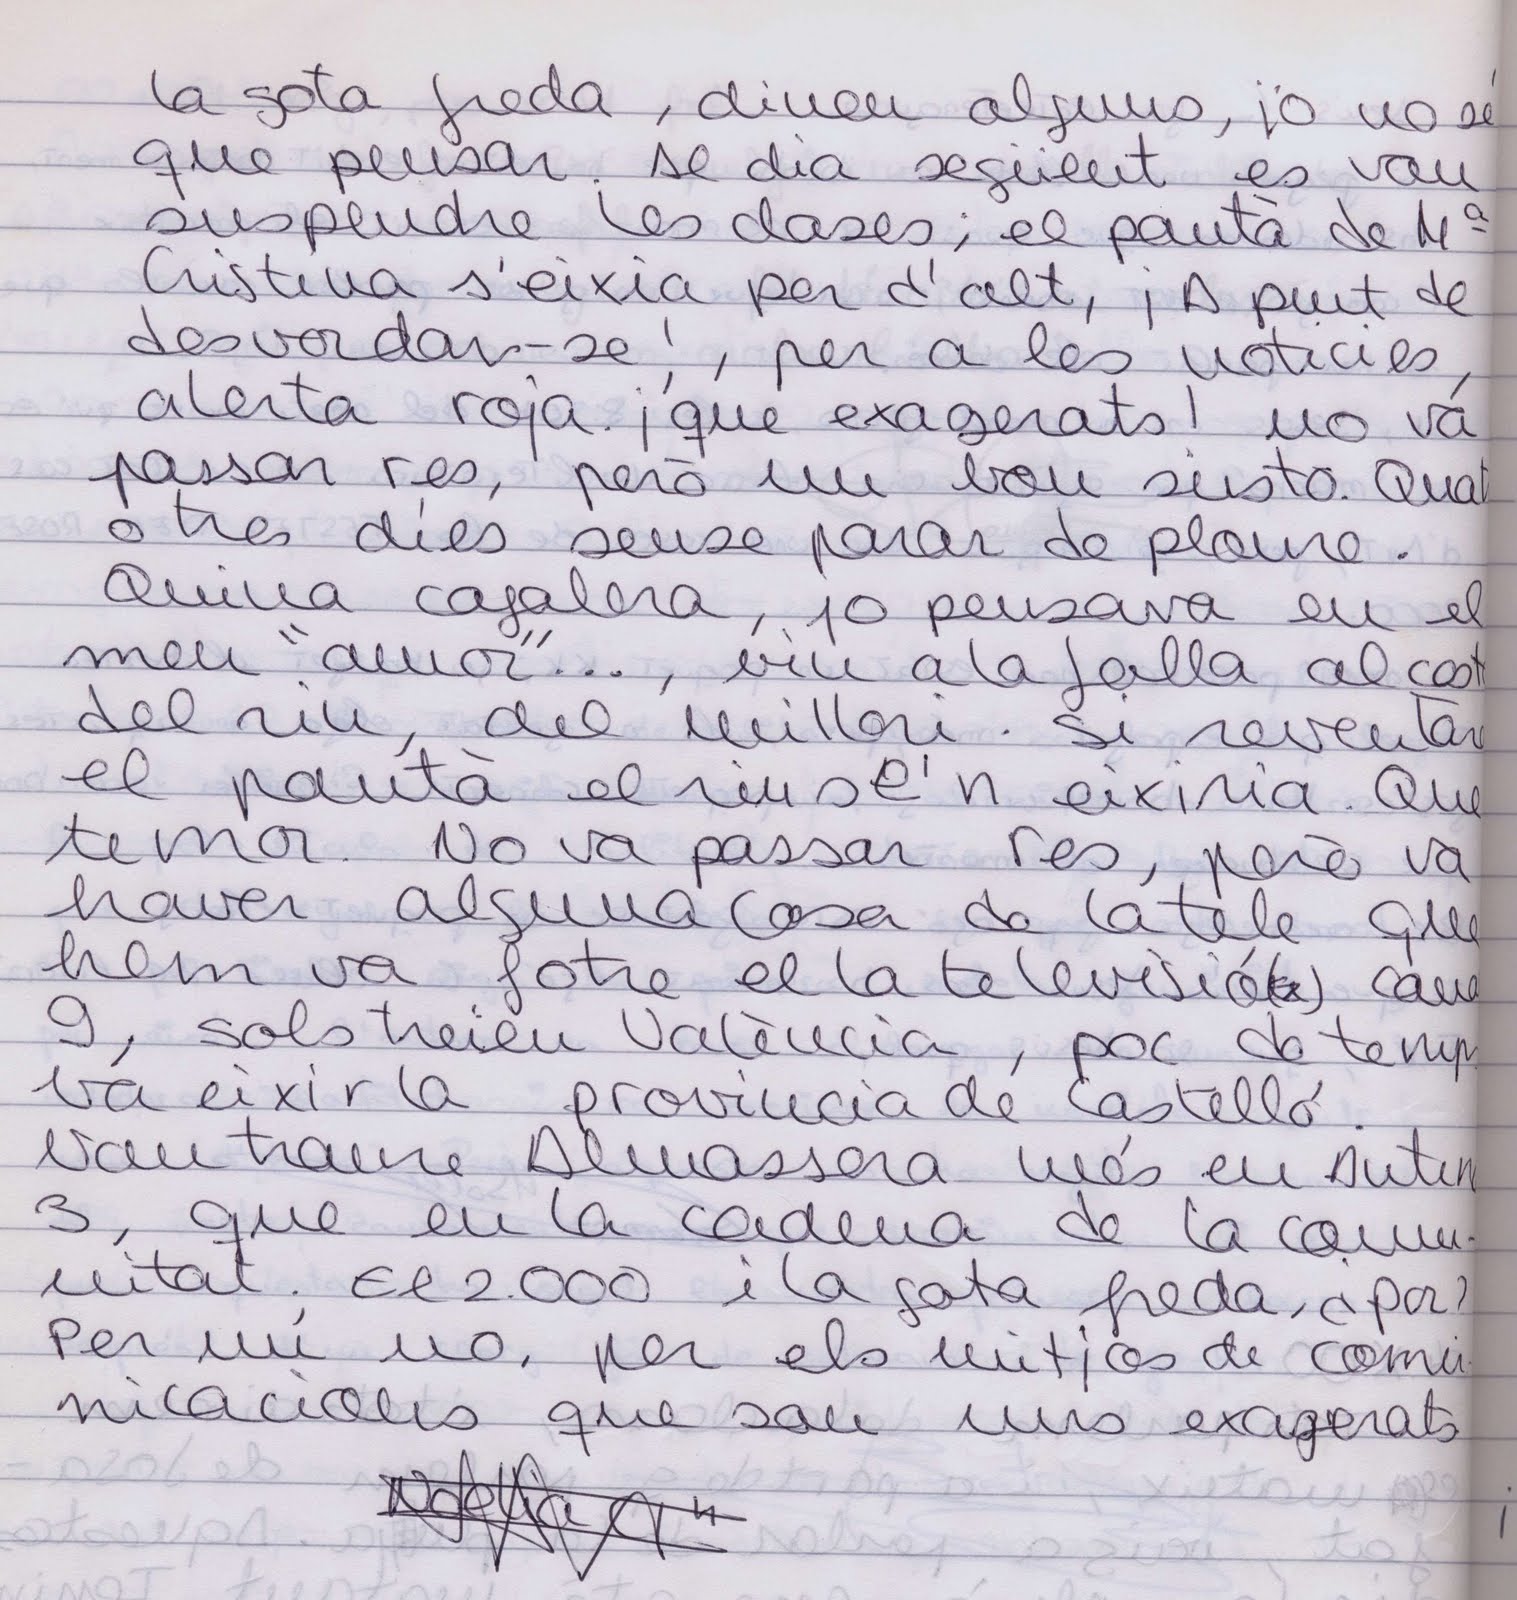 la gota freda, diuen alguns, jo no sé
que pensar. Al dia següent es van
suspendre les clases; el pantà de Mª
Cristina s'eixia per d'alt, ¡A punt de
desvordar-se!, per a les noticies,
alerta roja. ¡que exagerats! no vá
passar res, però un bon susto. Quat
o tres díes sense parar de ploure.
Quina cagalera, jo pensava en el
meu "amor"..., viu a la falla al cost
del riu, del millori. Si reventàr
el pantà el riu se'n eixiria. Que
temor. No va passar res, però va
haver alguna cosa de la tele que
hem va fotre el la televisió() cana
9, sols treien València, poc de temp
va eixir la provincia de Castelló.
van traure Almassora més en Anten
3, que en la cadena de la comu-
nitat. El 2.000 i la gota freda, ¿por?
Per mí no, per els mitjos de comu-
nicacions que son uns exagerats
Noelia